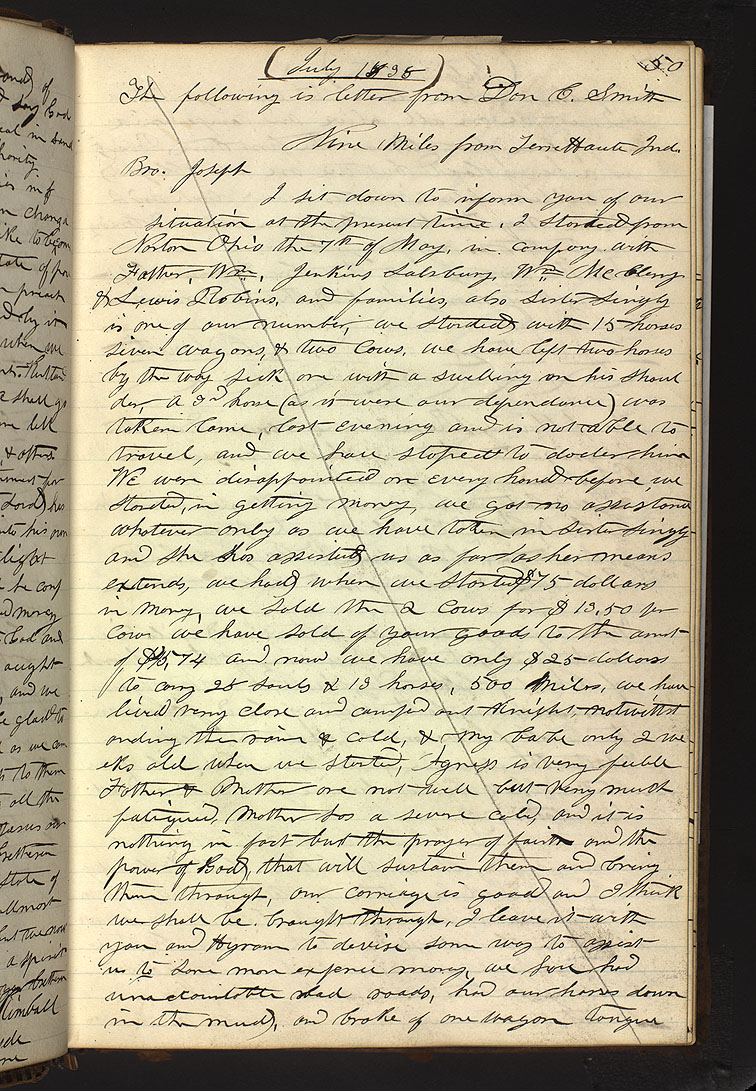 (July 1838) 50
The following is letter from Don C. Smith
Nine Miles from Terre Haute Ind.
Bro. Joseph
I sit down to inform you of our
situation at the present time. I started from
Norton Ohio the 7th of May, in company with
Father, Wm, Jenkins Salsbury, Wm McClery
& Lewis Robins, and families, also Sister Singly
is one of our number, we started with 15 horses
seven wagons, & two cows. we have left two horses
by the way sick one with a swelling on his shoul
der, a 3rd horse (as it were our dependance) was
taken lame, last evening and is not able to
travel, and we have stoped to docter him
We were disappointed on every hand before we
started, in getting money, we got no assistance
whatever only as we have taken in Sister Singly
and she has assisted us as far as her means
extends, we had when we started $75 dollars
in money, we sold the 2 cows for $13,50 per
cow we have sold of your goods to the amt
of $45,74 and now we have only $25 dollars
to carry 28 souls & 13 horses, 500 Miles, we have
lived very close and camped out Knight notwithst
anding the rain & cold, & my babe only 2 we
eks old when we started, Agness is very feeble
Father & Mother are not well but very much
fatigued, Mother has a severe cold, and it is
nothing in fact but the prayer of faith and the
power of God, that will sustain them and bring
them through, our carriage is good and I think
we shall be braught through, I leave it with
you and Hyram to devise some way to assist
us to some more expence money, we have had
unaccountable bad roads, had our horses down
in the mud, and broke of one wagon tongue